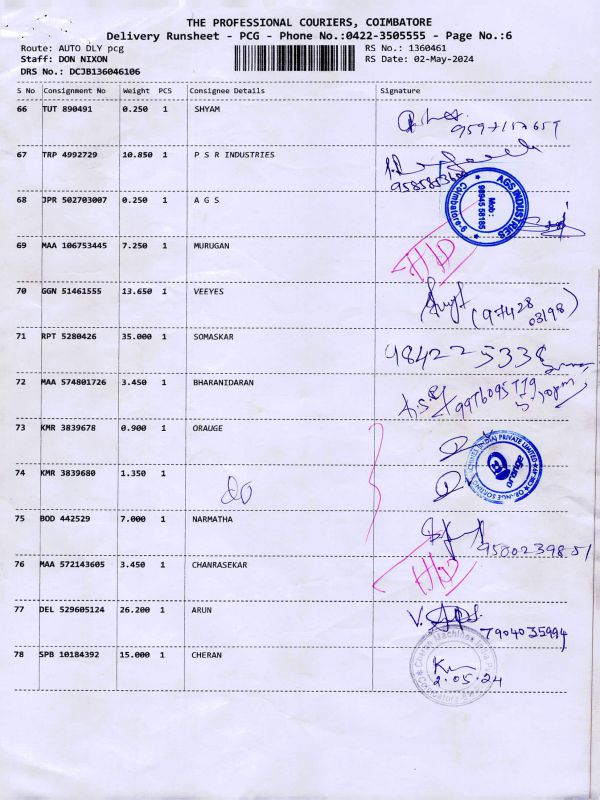 THE PROFESSIONAL COURIERS, COIMBATORE
Delivery Runsheet - PCG - Phone No.:0422-3505555 - Page No.:6
Route: AUTO DLY pcg RS No.: 1360461
Staff: DON NIXON RS Date: 02-May-2024
DRS No.: DCJB136046106
S No Consignment No Weight PCS Consignee Details Signature
66 TUT 890491 0.250 1 SHYAM
67 TRP 4992729 10.850 1 P S R INDUSTRIES
68 JPR 502703007 0.250 1 A G S
AGS INDUSTRIES
Mob :
98945 58185
69 MAA 106753445 7.250 1 MURUGAN
70 GGN 51461555 13.650 1 VEEYES
(97428
03198)
71 RPT 5280426 35.000 1 SOMASKAR
9842275338
72 MAA 574801726 3.450 1 BHARANIDARAN
73 KMR 3839678 0.900 1 ORAUGE
orange
74 KMR 3839680 1.350 1
75 BOD 442529 7.000 1 NARMATHA
9500239851
76 MAA 572143605 3.450 1 CHANRASEKAR
77 DEL 529605124 26.200 1 ARUN
7904035994
78 SPB 10184392 15.000 1 CHERAN
2.05.24